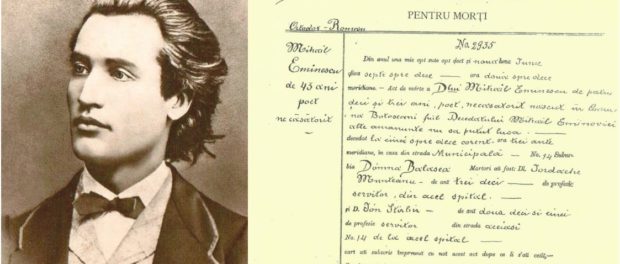 PENTRU MORȚI
Ortodox - Român
Mihail
Eminescu
de 43 ani
poet
necăsătorit
No 2935
Din anul una mie opt sute opt deci și nouă luna Iunie
ziua șapte spre dece ora două spre dece
meridiane. – Act de mórte a Dlui Mihail Eminescu de patru
deci și trei ani, poet, necăsatorit născut în Comu
na Botoșani fiul Decedatului Mihail Eminovici
alte amanunte nu sa putut lua.
decedat la cinci spre dece corent, ora trei ante
meridiane, în casa din strada Municipală No. 94 Subur-
bia Domna Balașea Martori aŭ fost: D. Iordache
Munteanu de ani trei deci de profesie
servitor, din acel spital.
și D. Ion de ani doua deci si cinci
de profesie servitor din strada aceiasi
No. 94 de la acel spital
cari aŭ subscris împreună cu noi acest act după ce li s'aŭ cetit,